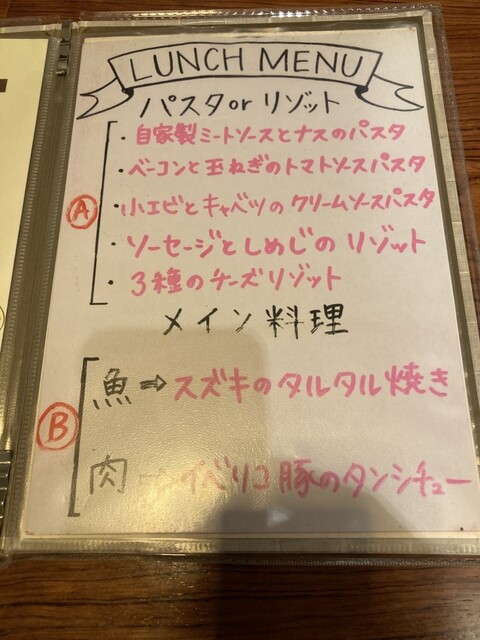 LUNCH MENU
パスタorリゾット
A
・自家製ミートソースとナスのパスタ
・ベーコンと玉ねぎのトマトソースパスタ
・小エビとキャベツのクリームソースパスタ
・ソーセージとしめじのリゾット
・3種のチーズリゾット
メイン料理
B
魚⇒スズキのタルタル焼き
肉⇒イベリコ豚のタンシチュー